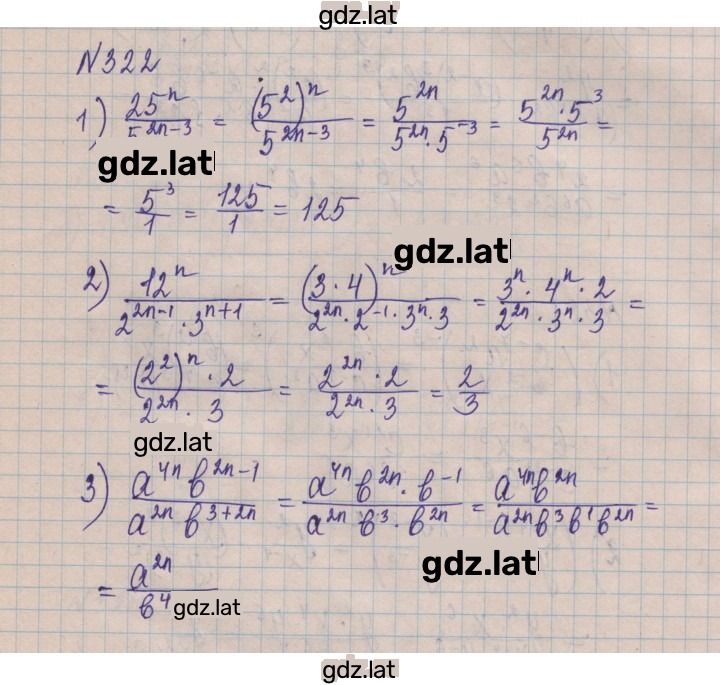 gdz.lat
N322
1) 25^n / 5^(2n-3) = (5^2)^n / 5^(2n-3) = 5^(2n) / (5^(2n) · 5^(-3)) = (5^(2n) · 5^3) / 5^(2n) =
gdz.lat
= 5^3 / 1 = 125 / 1 = 125
gdz.lat
2) 12^n / (2^(2n-1) · 3^(n+1)) = (3 · 4)^n / (2^(2n) · 2^(-1) · 3^n · 3) = (3^n · 4^n · 2) / (2^(2n) · 3^n · 3) =
= ((2^2)^n · 2) / (2^(2n) · 3) = (2^(2n) · 2) / (2^(2n) · 3) = 2 / 3
gdz.lat
3) a^(4n) b^(2n-1) / (a^(2n) b^(3+2n)) = (a^(4n) b^(2n) · b^(-1)) / (a^(2n) b^3 · b^(2n)) = a^(4n) b^(2n) / (a^(2n) b^3 b^1 b^(2n)) =
gdz.lat
= a^(2n) / b^4
gdz.lat
gdz.lat